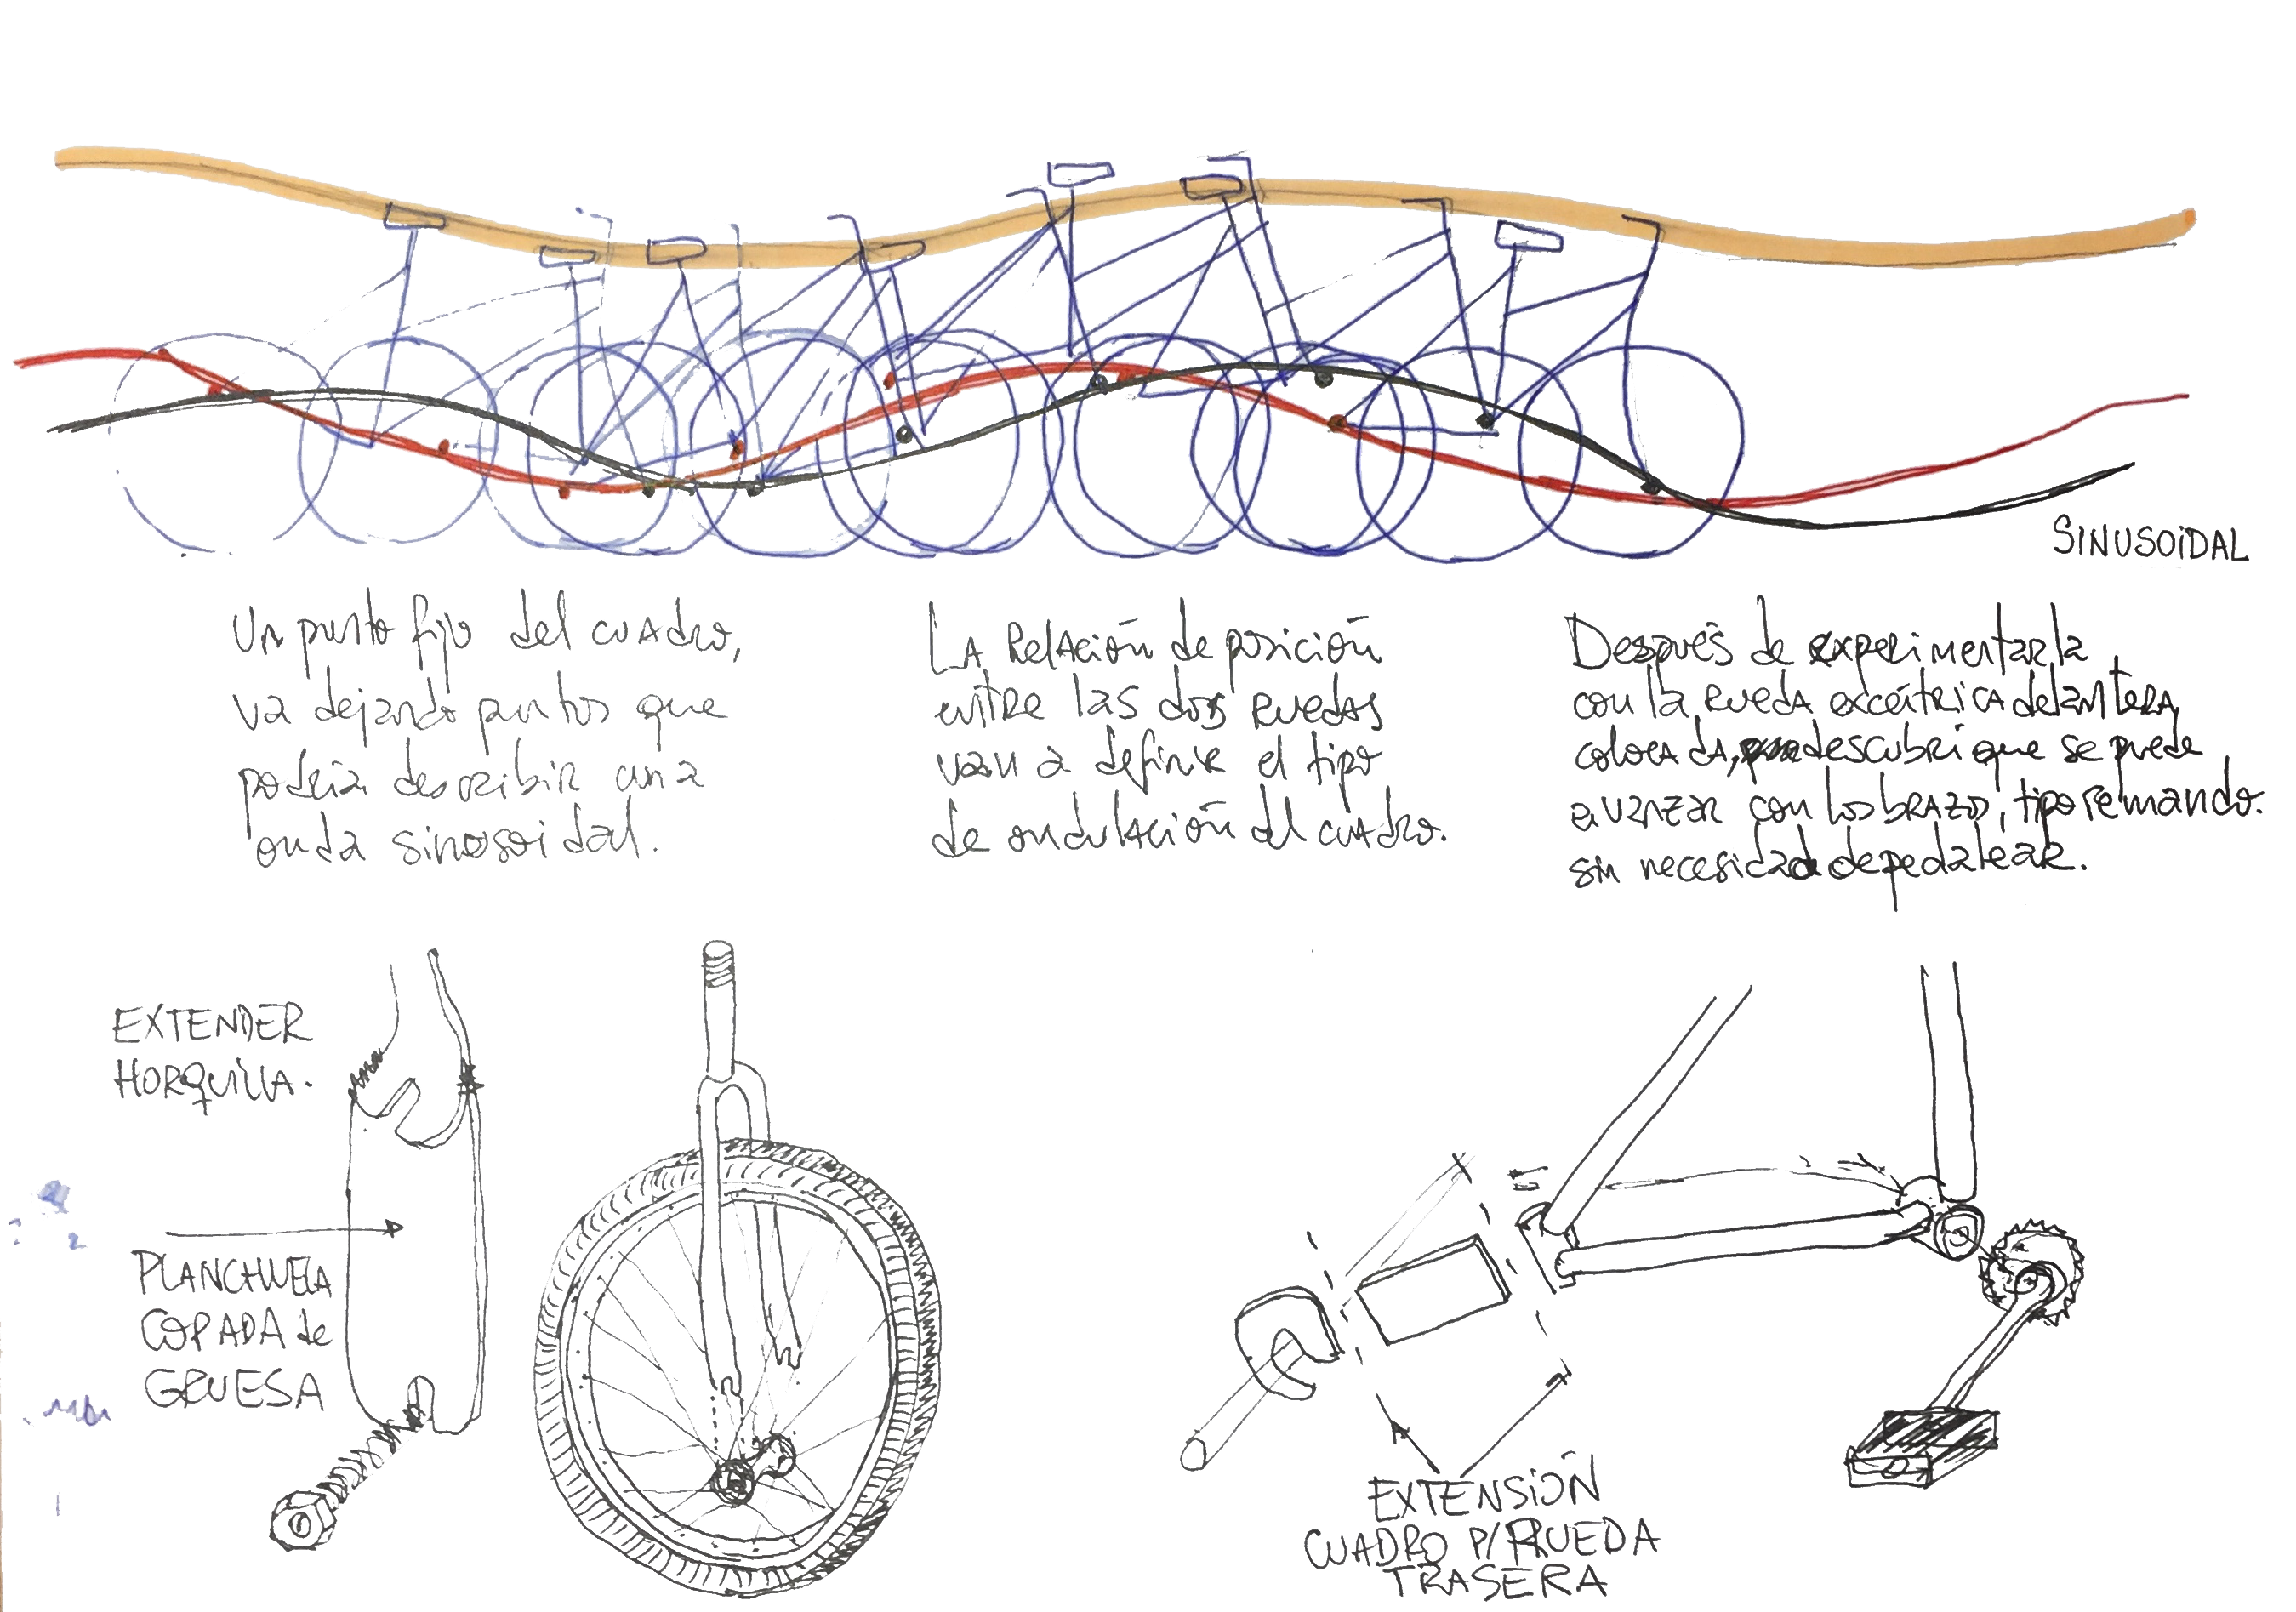 SINUSOIDAL
Un punto fijo del cuadro,
va dejando puntos que
podria describir una
onda sinosoidal.
La Relación de posición
entre las dos ruedas
van a definir el tipo
de ondulación del cuadro.
Después de experimentarla
con la rueda excéntrica delantera
colocada, descubri que se puede
avanzar con los brazos, tipo remando.
sin necesidad de pedalear.
EXTENDER
HORQUILLA.
PLANCHUELA
COPADA de
GRUESA
EXTENSIÓN
CUADRO P/ RUEDA
TRASERA